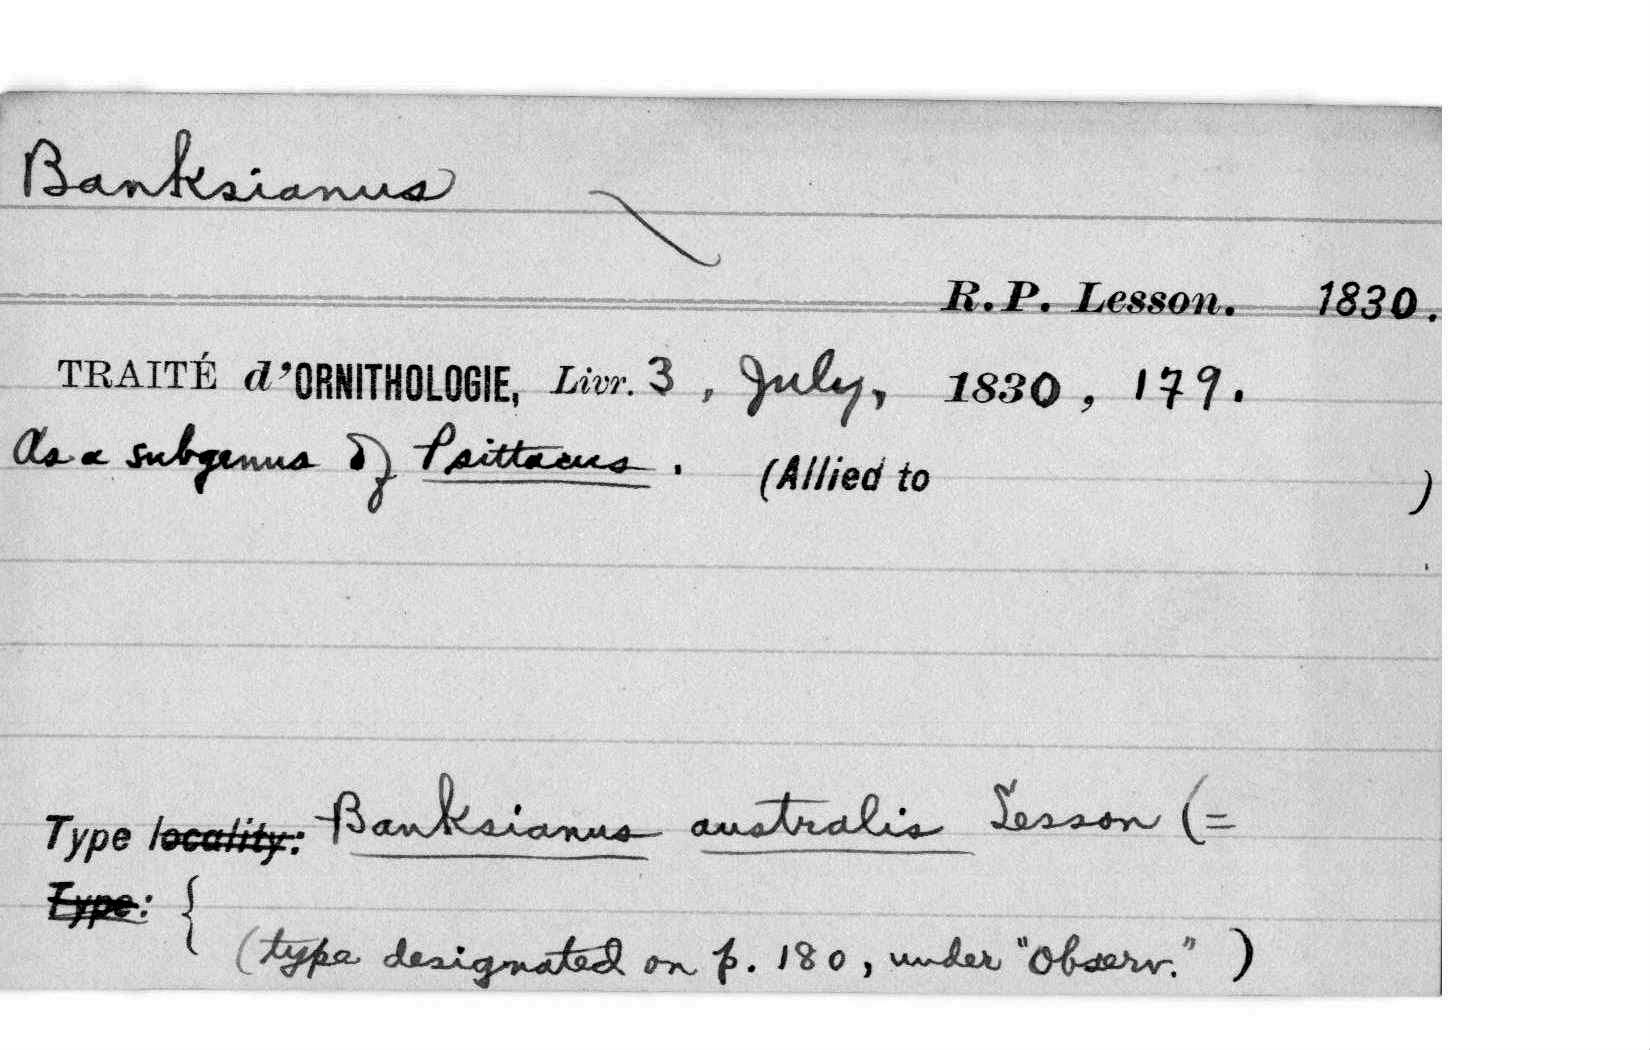 Banksianus
R.P. Lesson. 1830.
TRAITÉ d'ORNITHOLOGIE, Livr. 3, July, 1830, 179.
As a subgenus of Psittacus. (Allied to )
Type locality: Banksianus australis Lesson (=
Type: {
(type designated on p. 180, under "Observ.")